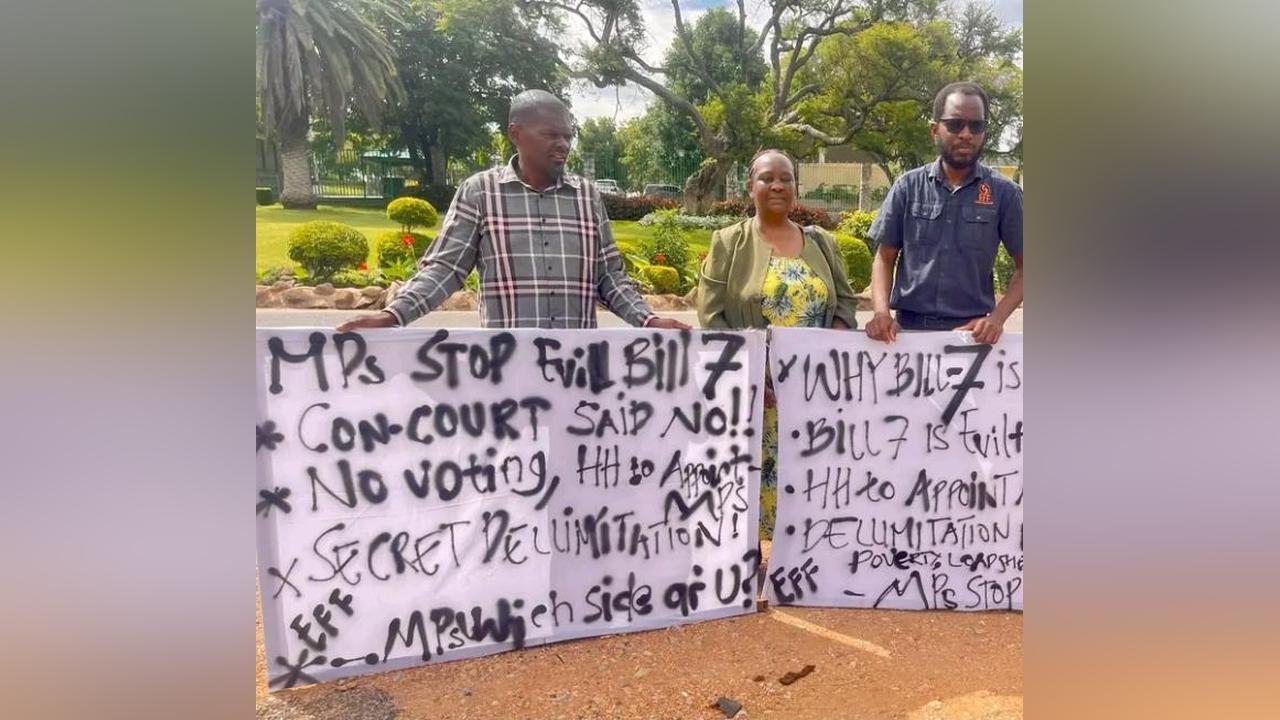 MPs STOP Evill Bill 7
* CON-COURT SAID NO!!
* No voting, HH to Appoint
MPs
X SECRET DELLIMITATION!
EFF
* — MPs Wich side ar U?
X WHY BILL-7 is
• BILL 7 is Evil
• HH to APPOINT
• DELLIMITATION
POVERTY, LOADSHE
EFF — MPs STOP
EFF